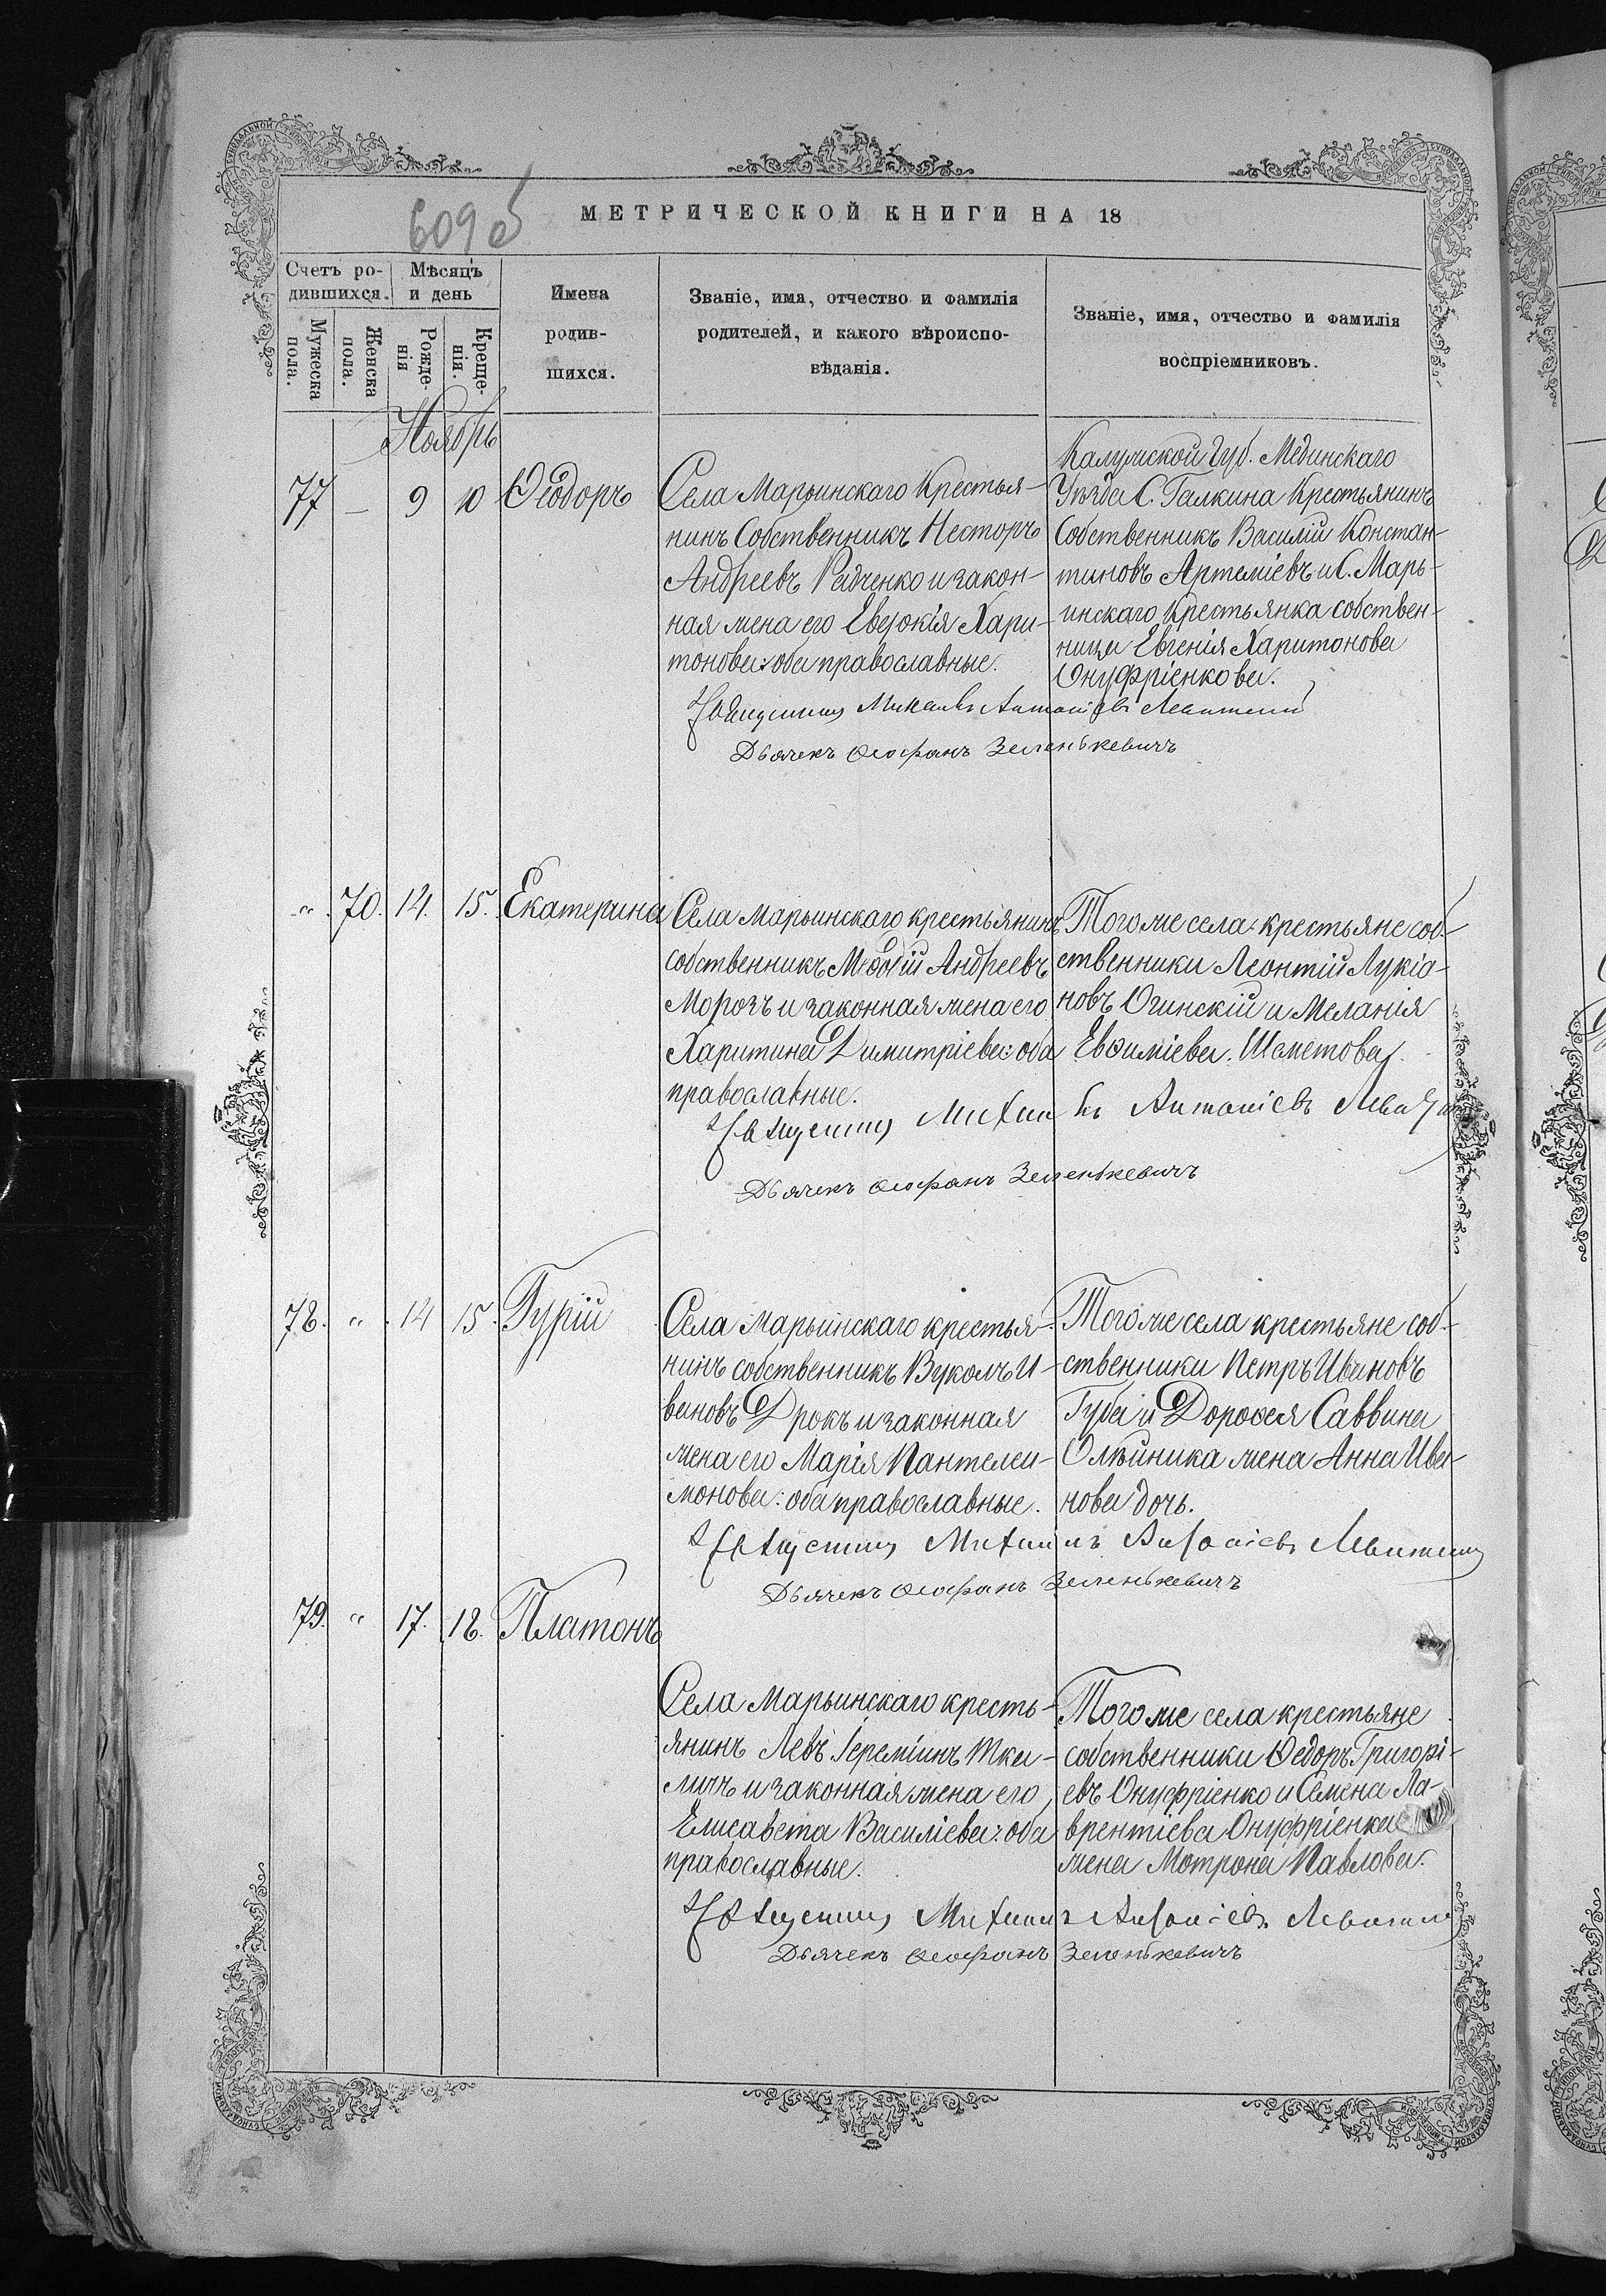 609 об
МЕТРИЧЕСКОЙ КНИГИ НА 18
Счетъ ро-
дившихся.
Мѣсяцъ
и день
Имена
родив-
шихся.
Званіе, имя, отчество и фамилія
родителей, и какого вѣроиспо-
вѣданія.
Званіе, имя, отчество и фамилія
воспріемниковъ.
Мужеска
пола.
Женска
пола.
Рожде-
нія
Креще-
нія.
Ноябрь
77 — 9 10 Ѳеодоръ
Села Марьинскаго Крестья-
нинъ Собственникъ Несторъ
Андреевъ Радченко и закон-
ная жена его Евдокія Хари-
тонова: оба православные.
Калужской Губ. Мединскаго
Уѣзда С. Галкина Крестьянинъ
Собственникъ Василій Констан-
тиновъ Артеміевъ и С. Марь-
инскаго Крестьянка собствен-
ница Евгенія Харитонова
Онуфріенкова.
Михаилъ Антоніевъ Левитскій
Дьячекъ Ѳеофанъ Зеленькевичъ
" 70. 14. 15. Екатерина
Села Марьинскаго крестьянинъ
собственникъ Андреевъ
Морозъ и законная жена его
Харитина Димитріева: оба
православные.
Того же села крестьяне соб-
ственники Леонтій Лукіа-
новъ Огинскій и Меланія
Евѳиміева Шаметова.
Михаилъ Антоніевъ
Дьячекъ Ѳеофанъ Зеленькевичъ
78. " 14 15. Гурій
Села Марьинскаго крестья-
нинъ собственникъ Вуколъ И-
вановъ Дрокъ и законная
жена его Марія Пантелеи-
монова: оба православные.
Того же села крестьяне соб-
ственники Петръ Ивановъ
Губа и Дороѳея Саввина
Олѣйника жена Анна Ива-
нова дочь.
Михаилъ Антоніевъ Левитскій
Дьячекъ Ѳеофанъ Зеленькевичъ
79. " 17. 18. Платонъ
Села Марьинскаго кресть-
янинъ Левъ Іереміинъ Тка-
личъ и законная жена его
Елисавета Василіева: оба
православные.
Того же села крестьяне
собственники Ѳедоръ Григорі-
евъ Онуфріенко и Семена Ла-
врентіева Онуфріенка
жена Мотрона Павлова.
Михаилъ Антоніевъ Левитскій
Дьячекъ Ѳеофанъ Зеленькевичъ